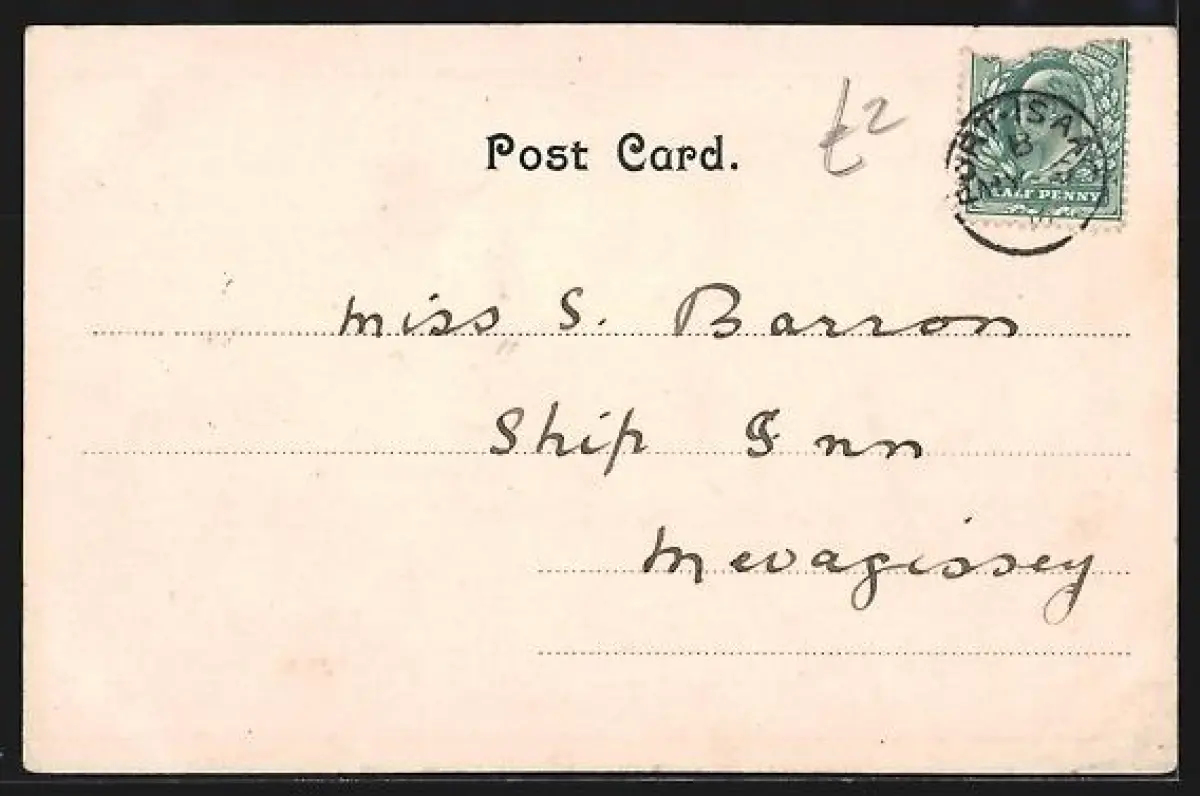 Post Card.
£2
PORT-ISAA
HALF PENNY
Miss S. Barron
Ship Inn
Mevagissey